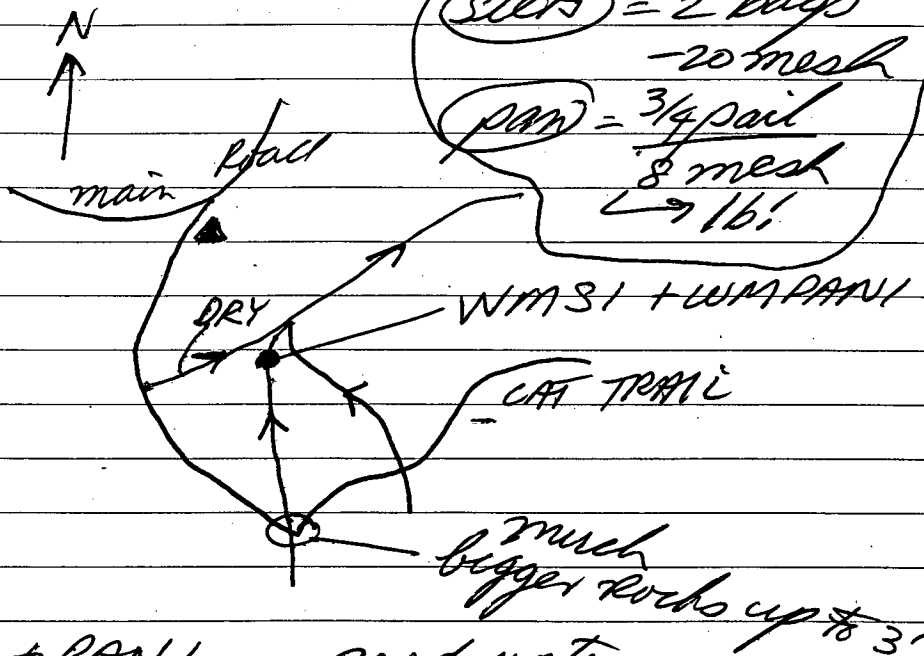 N
= 2 bags
-20 mesh
pan = 3/4 pail
8 mesh
→ 1 lb!
main Road
DRY
WMS1 + WMPAN1
CAT TRAIL
much
bigger rocks up to 3'
+ PAN1